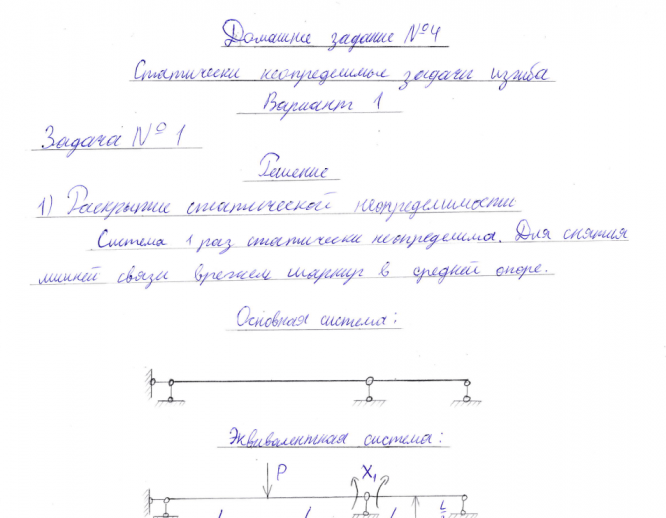 Домашнее задание №4
Статически неопределимые задачи изгиба
Вариант 1
Задача №1
Решение
1) Раскрытие статической неопределимости
Система 1 раз статически неопределима. Для снятия
лишней связи врежем шарнир в средней опоре.
Основная система:
Эквивалентная система:
P X₁
L/